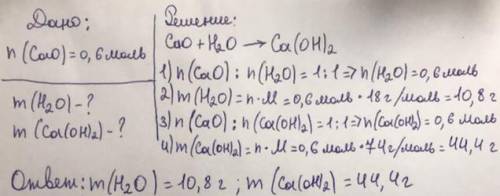 Дано:
n(CaO)=0,6моль
m(H2O)-?
m(Ca(OH)2)-?
Решение:
CaO+H2O→Ca(OH)2
1) n(CaO):n(H2O)=1:1=>n(H2O)=0,6моль
2) m(H2O)=n·M=0,6моль·18г/моль=10,8г
3) n(CaO):n(Ca(OH)2)=1:1=>n(Ca(OH)2)=0,6моль
4) m(Ca(OH)2)=n·M=0,6моль·74г/моль=44,4г
Ответ: m(H2O)=10,8г; m(Ca(OH)2)=44,4г